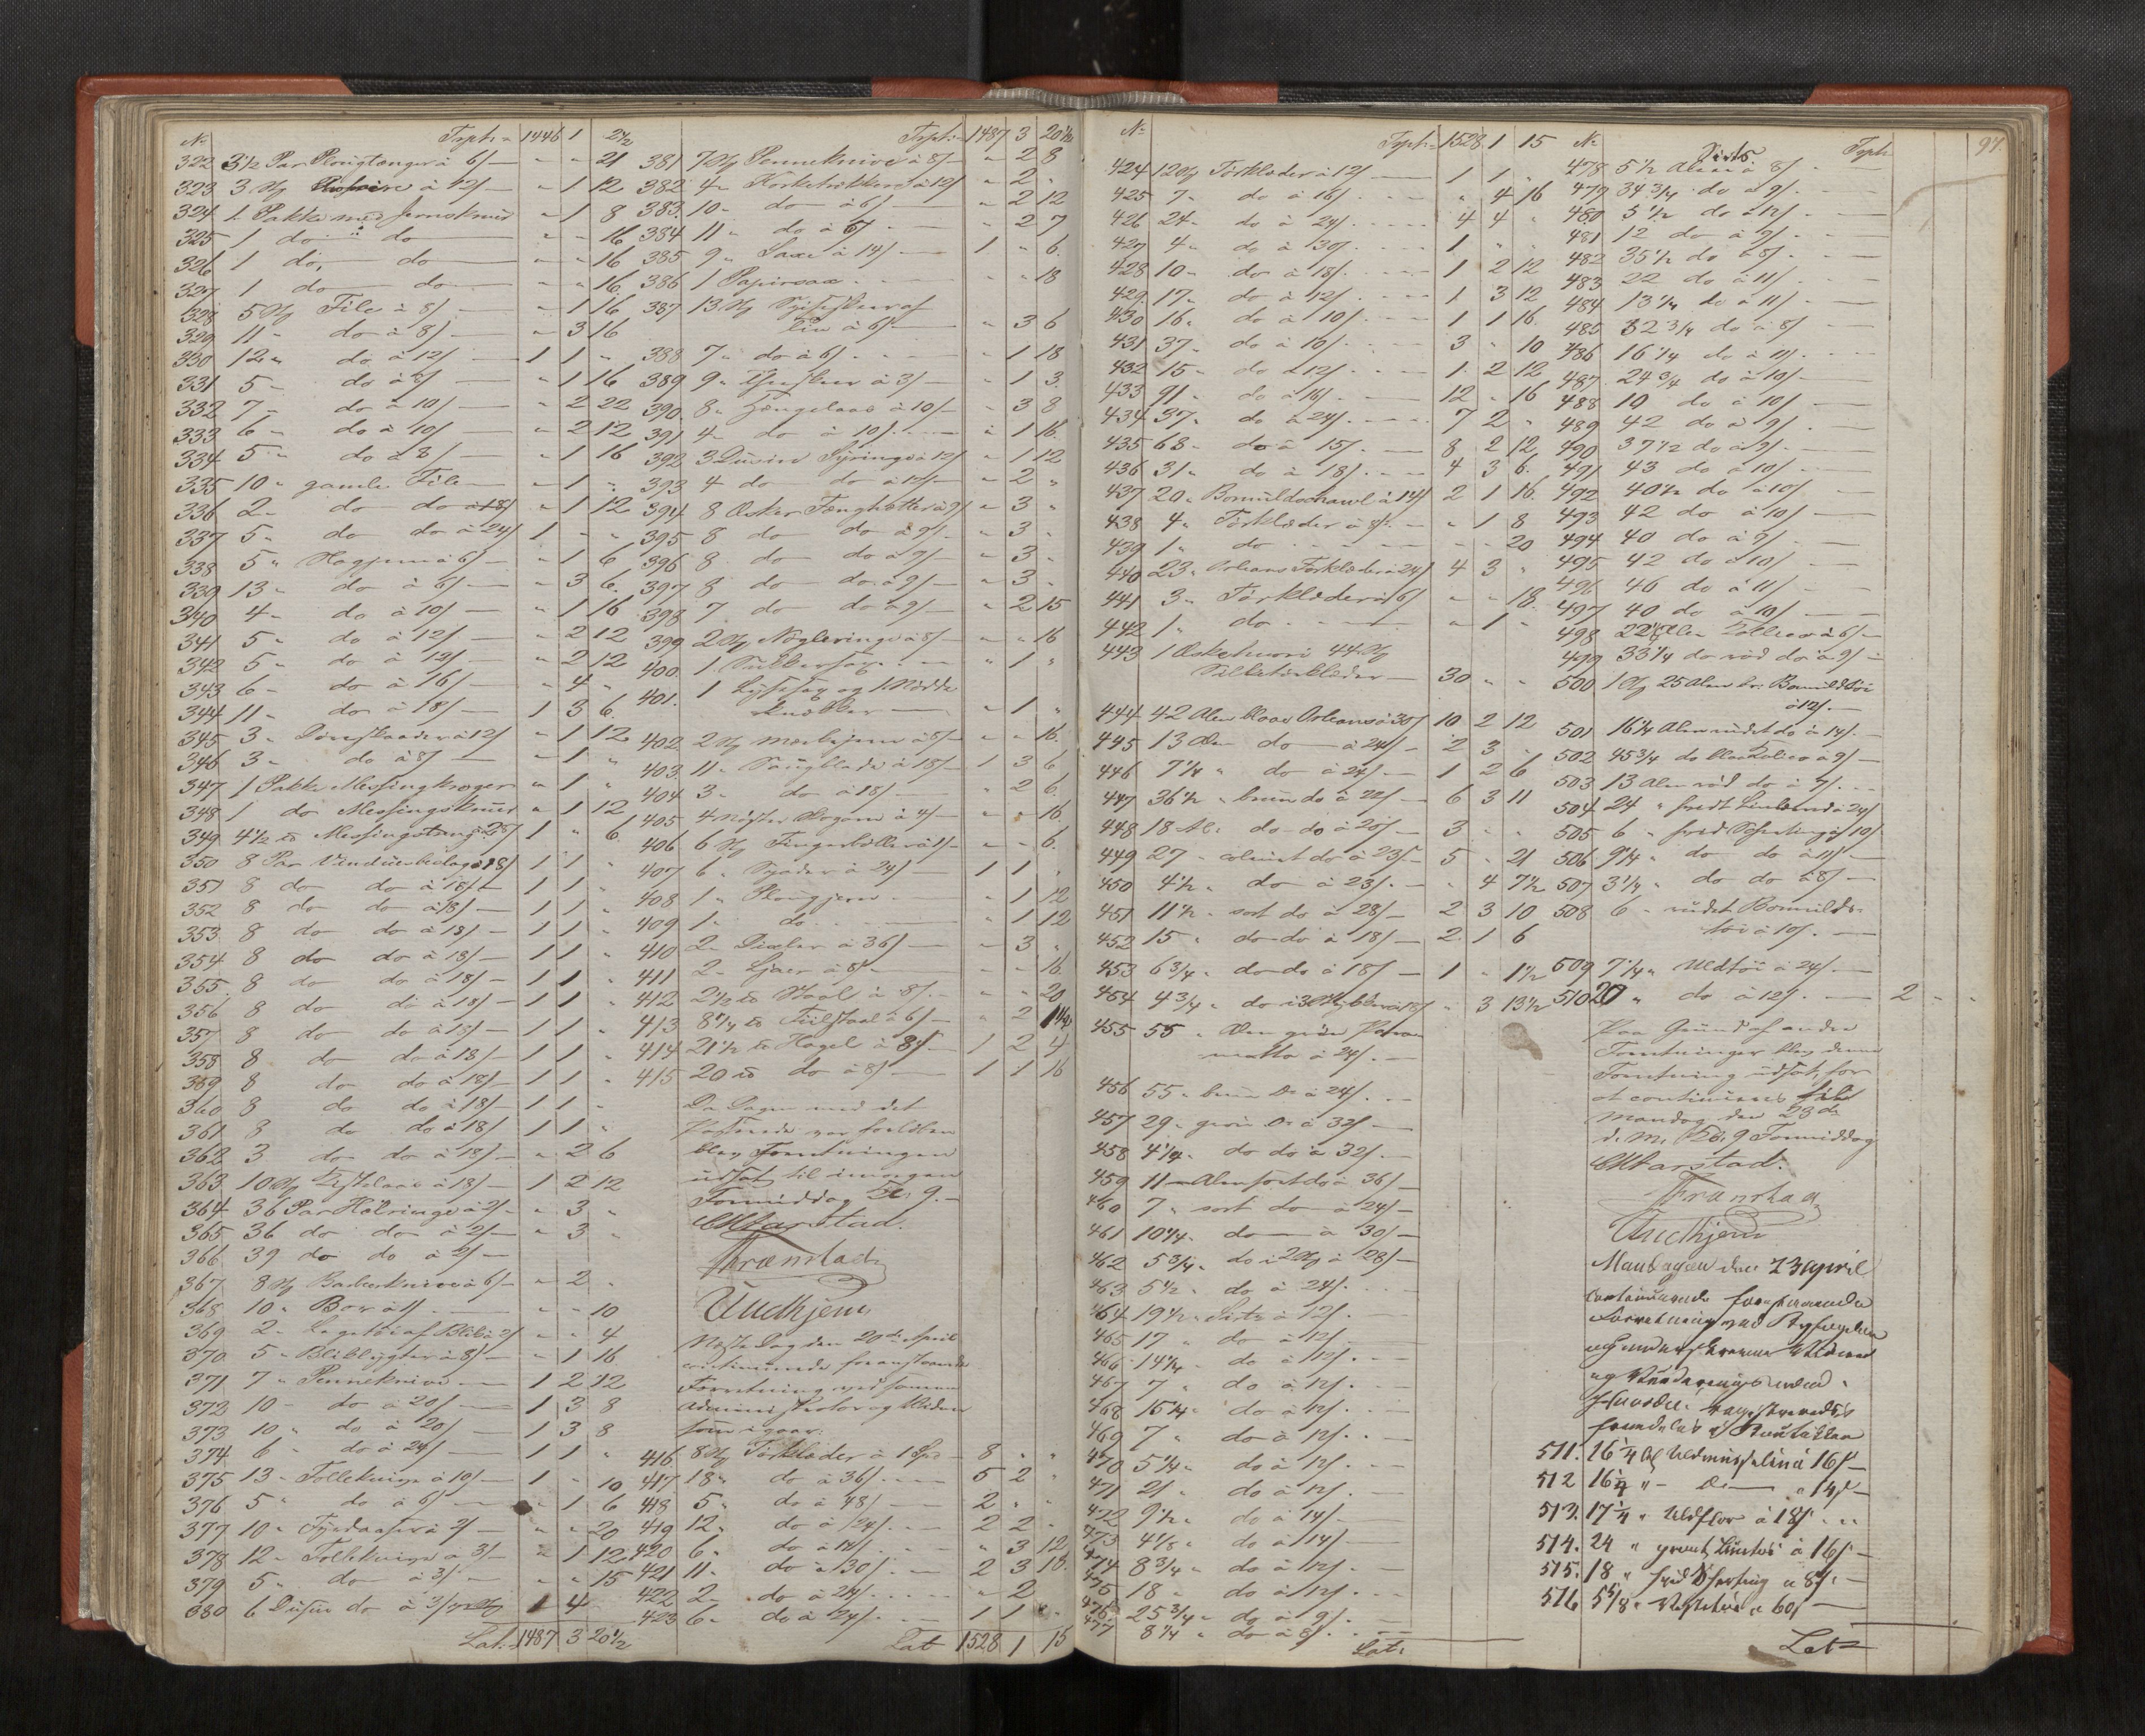 No Tsph: 1446 1 2½
322 3½ Par Plougtænger à 6/ — " " 21
323 3 St à 12/ — " 1 12
324 1 Pakke med Jernskruer " 1 8
325 1 do do — " " 16
326 1 do. do — " " 16
327 1 do do — " " 16
328 5 St File à 8/ — " 1 16
329 11 " do à 8/ — " 3 16
330 12 " do à 12/ — 1 1 "
331 5 " do à 8/ — " 1 16
332 7 " do à 10/ — " 2 22
333 6 " do à 10/ — " 2 12
334 5 " do à 8/ — " 1 16
335 10 " gamle File — " 1 "
336 2 " do do à 18/ " 1 12
337 5 " do do à 24/ 1 " "
338 5 " Høgjern à 6/ — " 1 6
339 13 " do à 6/ — " 3 6
340 4 " do à 10/ — " 1 16
341 5 " do à 12/ — " 2 12
342 5 " do à 12/ — " 2 12
343 6 " do à 16/ — " 4 "
344 11 " do à 18/ — 1 3 6
345 3 " à 12/ " 1 12
346 3 " do à 8/ — " 1 "
347 1 Pakke Messingkroger " 1 "
348 1 do Messingskruer " 1 12
349 4½ ℔ Messingstang à 28/ 1 " 6
350 8 Par Vinduebeslag à 18/ 1 1 "
351 8 do do à 18/ — 1 1 "
352 8 do do à 18/ — 1 1 "
353 8 do do à 18/ — 1 1 "
354 8 do do à 18/ — 1 1 "
355 8 do do à 18/ — 1 1 "
356 8 do do à 18/ — 1 1 "
357 8 do do à 18/ — 1 1 "
358 8 do do à 18/ — 1 1 "
359 8 do do à 18/ — 1 1 "
360 8 do do à 18/ — 1 1 "
361 8 do do à 18/ 1 1 "
362 3 do do à 18/ — " 2 6
363 10 St à 18/ — 1 2 12
364 36 Par Hælringe à 2/ — " 3 "
365 36 do do à 2/ — " 3 "
366 39 do do à 2/ —
367 8 St Barberknive à 6/ — " 2 "
368 10 " Bor à 1/ — " " 10
369 2 " Legetøi af Blik à 2/ " " 4
370 5 " Bliklygter à 8/ — " 1 16
371 7 " Penneknive — 1 2 12
372 10 " do à 20/ — 1 3 8
373 10 " do à 20/ — 1 3 8
374 6 " do à 24/ — 1 1 "
375 13 " Tolleknive à 10/ — 1 " 10
376 5 " do à 6/ — " 1 6
377 10 " à 2/ — " " 20
378 12 " Tolleknive à 3/ — " 1 12
379 5 " do à 3/ — " " 15
380 6 Dusin do à 3/ 1 4
Lat. 1487 3 20½
Tsph: 1487 3 20½
381 7 St Penneknive à 8/ — " 2 8
382 4 " Korketrækkere à 12/ " 2 "
383. 10 " do à 6/ — " 2 12
384 11 " do à — " 2 7
385 9 " Saxe à 14/ — 1 " 6.
386 1 Papirsax — " " 18
387 13 St af
à 6/ — " 3 6
388 7 " do à 6/ — " 1 18
389 9 " à 3/ — " 1 3.
390. 8 " Hængelaas à 10/ — " 3 8
391 4 " do à 10/ — " 1 16.
392 3 Dusin Syringe à 12/ " 1 12
393 4 do do à 12/ — " 2 "
394 8 Æsker Fænghætter à 9/ " 3 "
395 8 do do à 9/ — " 3 "
396 8 do do à 9/ — " 3 "
397 8 do do à 9/ — " 3 "
398 7 do do à 9/ — " 2 15
399 2 St Nøgleringe à 8/ — " " 16
400. 1 — " 1 "
401. 1 Lysesax og 1 Nødde
knækker — " 1 "
402 2 St à 8/ — " " 16.
403. 11 " Saugblade à 18/ — 1 3 6
404 3 " do à 18/ — " 2 6.
405 4 à 4/ — " " 16.
406 6 St Fingerbøller à 1/ — " " 6.
407 6 " à 24/ — 1 1 "
408 1 " Plougjern — " 1 12
409 1 " do — " 1 12
410 2 " à 36/ — " 3 "
411 2 " Ljaer à 8/ — " " 16.
412 2½ ℔ Staal à 8/ — " " 20
413 8¼ ℔ Fiilstaal à 6/ — " 2 1½
414 21½ ℔ Hagel à 8/ — 1 2 4
415 20 ℔ do à 8/ — 1 1 16
Da Dagen med det
var forløben
blev Forretningen
udsat til imorgen
Formiddag Kl. 9. —
Marstad.
Trænstad
Undhjem
Næste Dag den 20de April
continuerede foranstaaende
Forretning ved samme
Administrator og Vidner
som igaar:
416 8 St Tørklæder à 1 Sp — 8 " "
417. 18 " do à 36/ — 5 2 "
418 5 " do à 48/ — 2 " "
419 12 " do à 24/ — 2 2 "
420 6 " do à — " 3 12
421 11 " do à 30/ — 2 3 18.
422 2 " do à 24/ — " 2 "
423 6 " do à 24/ — 1 1 "
Lat 1528 1 15
No Tsph: 1528 1 15
424 12 St Tørklæder à 12/ — 1 1 "
425 7 " do à 16/ — " 4 16
426 24 " do à 24/ — 4 4 "
427 4 " do à 30/ — 1 " "
428 10 " do à 18/ — 1 2 12
429 17 " do à 12/ — 1 3 12
430 16 " do à 10/ — 1 1 16.
431 37 " do à 10/ — 3 " 10
432 15 " do à 12/ — 1 2 12
433 91 " do à 16/ — 12 " 16
434 37 " do à 24/ — 7 2 "
435 68 " do à 15/ — 8 2 12
436 31 " do à 18/ — 4 3 6.
437 20 " Bomuldschawl à 14/ 2 1 16.
438 4 " Tørklæder à 8/ — " 1 8
439 1 " do — " " 20
440 23 " Orleans Tørklæder à 24/ 4 3 "
441 3 " Tørklæder à 6/ — " " 18
442 1 " do — " 1 "
443 1 Æske hvori 44 St
Silketørklæder — 30 " "
444 42 Alen blaae Orleans à 30/ 10 2 12
445 13 Alen do à 24/ — 2 3 "
446 7¼ " do à 24/ — 1 2 6
447 36½ " bruun do à 22/ — 6 3 11
448 18 Al: do do à 20/ — 3 " "
449 27 " coleurt do à 23/ — 5 " 21
450 4½ " do à 23/ — " 4 7½
451 11½ " sort do à 28/ — 2 3 10
452 15 " do do à 18/ — 2 1 6
453 6¾ " do do à 18/ — 1 " 1½
454 4¾ " do i 3 Stykker à 18/ " 3 13½
455 55 " Alen grøn Para-
matta à 24/ —
456 55 " bruun do à 24/ —
457 29 " grøn do à 32/ —
458 4¼ " do do à 32/ —
459 11 " Alen sort do à 36/ —
460 7 " sort do à 24/ —
461 10¼ " do à 30/ —
462 5¾ " do i 2 St à 28/ —
463 5½ " do à 24/ —
464 19½ " Sirts à 12/ —
465 17 " do à 12/ —
466 14¼ " do à 12/ —
467 7 " do à 12/ —
468 15¼ " do à 12/ —
469 7 " do à 12/ —
470 5¼ " do à 12/ —
471 21 " do à 12/ —
472 9½ " do à 14/ —
473 4⅛ " do à 14/ —
474 8¾ " do à 12/ —
475 18 " do à 12/ —
476. 25¾ " do à 9/ —
477 8¼ " do à 8/ —
Lat:
No Tsph 94
478 5½ Alen Sirts à 8/ —
479 34¾ do à 9/ —
480 5½ do à 12/ —
481 12 do à 9/ —
482 35½ do à 8/ —
483 22 do à 11/ —
484 13¼ do à 11/ —
485 32¾ do à 8/ —
486 16¼ do à 11/ —
487 24¾ do à 10/ —
488 10 do à 10/ —
489 42 do à 9/ —
490 37½ do à 9/ —
491 43 do à 10/ —
492 40½ do à 10/ —
493 42 do à 10/ —
494 40 do à 9/ —
495 42 do à 10/ —
496 46 do à 11/ —
497 40 do à 10/ —
498 22¼ Alen à 6/ —
499 33¼ do rød do à 9/ —
500 1 St 25 Alen br: Bomuldstøi
à 12/ —
501 16¼ Alen rudet do à 14/ —
502 45¾ do blaa Kalico à 9/ —
503 13 Alen rød do à 9/ —
504 24 " hvidt Linlærred à 24/
505 6 " hvid Schirting à 10/
506 9¼ " do do à 11/ —
507 3¼ " do do à 8/ —
508 6 " rudet Bomulds-
tøi à 10/ —
509 7¼ " Uldtøi à 24/ —
510 20 " do à 12/ — 2 " "
Paa Grund af andre
Forretninger blev denne
Forretning udsat, for
at continueres til
Mandag den 23de
d. M. Kl. 9 Formiddag
Marstad.
Trænstad
Undhjem
Mandagen den 23 April
continuerede foranstaaende
Forretning ved
og underskrevne Vidner
og Vurderingsmænd.
511. 16¼ Al Uldmusselin à 16/ —
512 16¼ " do à 14/ —
513. 17¼ " Uldflor à 18/ —
514. 24 " grønt à 16/ —
515. 18 " hvid Scherting à 8/ —
516 5⅛ " Vestetøi à 60/ —
Lat